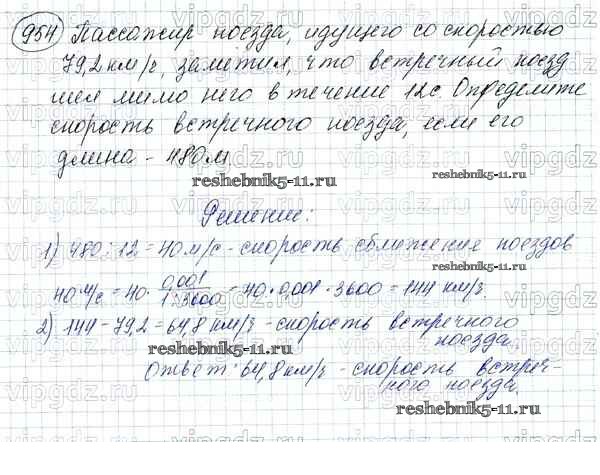 954 Пассажир поезда, идущего со скоростью
79,2 км/ч, заметил, что встречный поезд
шел мимо него в течение 12с. Определите
скорость встречного поезда, если его
длина - 480м.
reshebnik5-11.ru
Решение:
1) 480 : 12 = 40 м/с - скорость сближения поездов
reshebnik5-11.ru
40 м/с = 40 · 0,001 / 1:3600 = 40 · 0,001 · 3600 = 144 км/ч.
2) 144 - 79,2 = 64,8 км/ч - скорость встречного
поезда.
reshebnik5-11.ru
Ответ: 64,8 км/ч - скорость встреч-
ного поезда.
reshebnik5-11.ru
vipgdz.ru